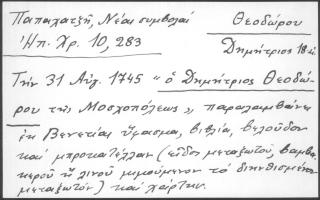 Παπαχατζῆ, Νέαι συμβολαί
Ἠπ. Χρ. 10, 283
Θεοδώρου
Δημήτριος 18 αἰ.
Τὴν 31 Αὐγ. 1745 "ὁ Δημήτριος Θεοδώ-
ρου τῆς Μοσχοπόλεως" παραλαμβάνει
ἐκ Βενετίας ὕφασμα, βιβλία, βελοῦδον
καὶ μπροκατέλλαν (εἶδος μεταξωτοῦ, βαμβα-
κεροῦ ἢ λινοῦ μιμούμενον τὸ διηνθισμένον
μεταξωτόν) καὶ χάρτην.